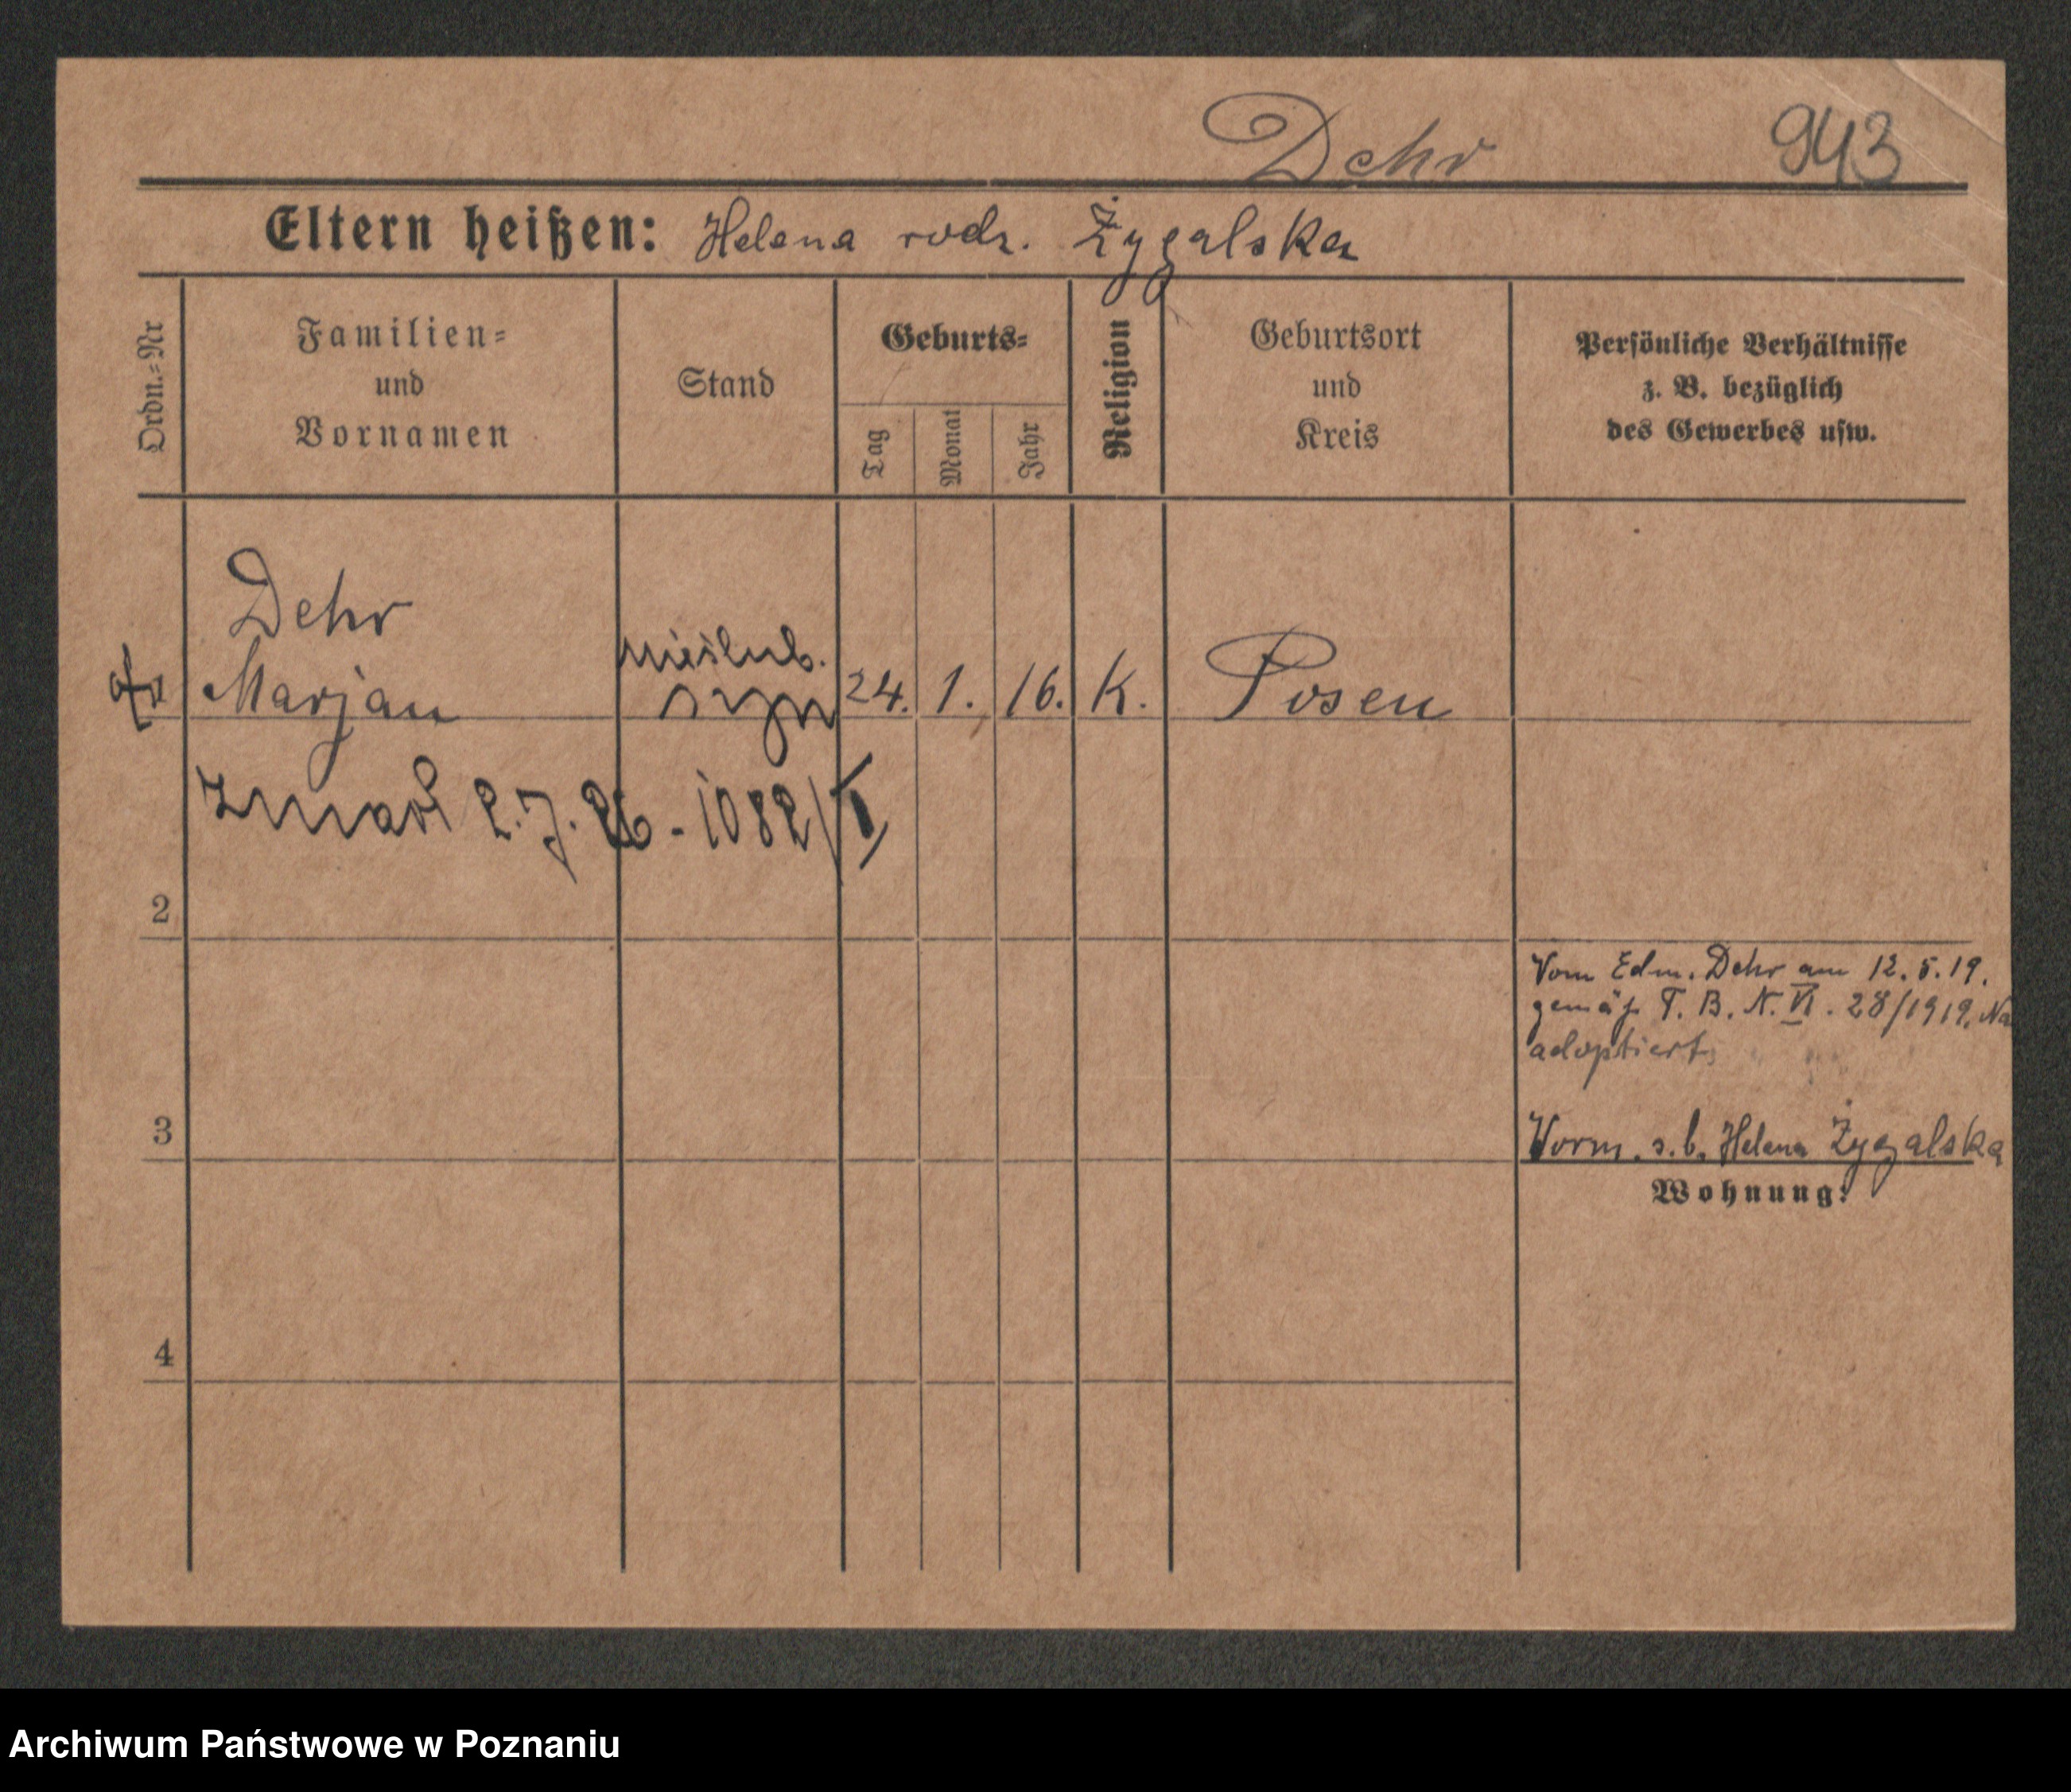 Dehr 943
Eltern heißen: Helena rodz. Żygalska
Ordn.-Nr
Familien-
und
Vornamen
Stand
Geburts-
Tag
Monat
Jahr
Religion
Geburtsort
und
Kreis
Persönliche Verhältnisse
z. B. bezüglich
des Gewerbes usw.
Dehr
Marjan
nieślub.
syn
24. 1. 16. K. Posen
Zmarł 2.7.26 - 1082/I
2
Vom Edm. Dehr am 12.5.19.
gemäß T. B. N. VI. 28/1919. Na
adoptiert.
3
Vorm. s. b. Helena Żygalska
Wohnung:
4
Archiwum Państwowe w Poznaniu